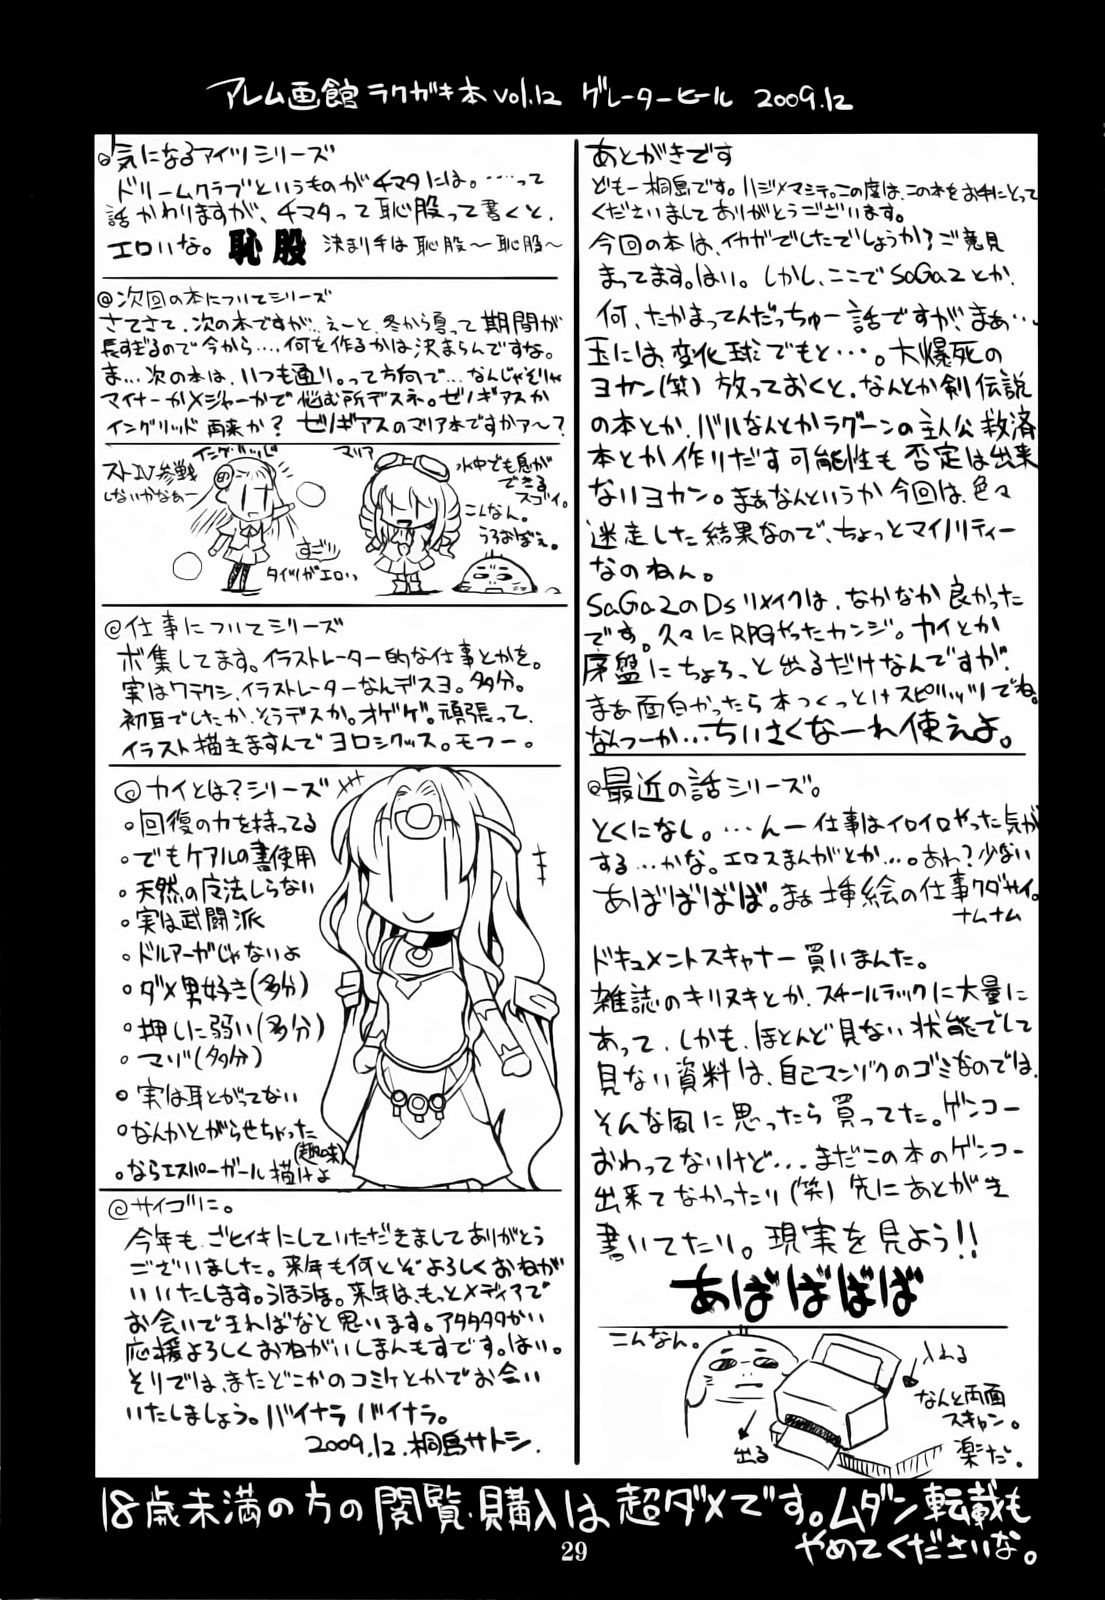 アレム画館 ラクガキ本 vol.12 グレーターヒール 2009.12
あとがきです
ども一桐島です。ハジメマシテ。この度は、この本をお手にとって
くださいましてありがとうございます。
今回の本は、イカガでしたでしょうか？ご意見
まってます。はい。しかし、ここでSaGa2とか、
何、たかまってんだっちゅー話ですが、まぁ…
玉には、変化球でもと…。大爆死の
ヨカン(笑) 放っておくと、なんとか剣伝説
の本とか、バルなんとかラグーンの主人公救済
本とか作りだす可能性も否定は出来
ないヨカン。まぁなんというか今回は、色々
迷走した結果なので、ちょっとマイノリティー
なのねん。
SaGa2のDSリメイクは、なかなか良かった
です。久々にRPGやったカンジ。カイとか
序盤にちょろっと出るだけなんですが、
まぁ面白かったら本つくっとけスピリッツでね。
なんつーか…ちいさくなーれ使えよ。
@最近の話シリーズ。
とくになし。…んー仕事はイロイロやった気が
する…かな。エロスまんがとか…。あわ？少ない
あばばばば。まぁ挿絵の仕事クダサイ。
ナムナム
ドキュメントスキャナー買いまんた。
雑誌のキリヌキとか、スチールラックに大量に
あって、しかも、ほとんど見ない状態でして
見ない資料は、自己マンゾクのゴミなのでは、
そんな風に思ったら買ってた。ゲンコー
おわってないけど…まだこの本のゲンコー
出来てなかったり(笑) 先にあとがき
書いてたり。現実を見よう!!
あばばばば
こんなん。
入れる
なんと両面
スキャン。
楽だ。
出る
@気になるアイツシリーズ
ドリームクラブというものがチマタには。……って
話かわりますが、チマタって恥股って書くと、
エロいな。恥股 決まり手は恥股～恥股～
@次回の本についてシリーズ
さてさて、次の本ですが…えーと、冬から夏って期間が
長すぎるので今から…何を作るかは決まらんですな。
ま…次の本は、いつも通り。って方向で…なんじゃそりゃ
マイナーかメジャーかで悩む所デスネ。ゼノギアスか
イングリッド再来か？ゼノギアスのマリア本ですかァ～？
イングリッド
ストIV参戦
しないかなぁー
すごい
タイツがエロい
マリア
水中でも息が
できる
スゴイ。
こんなん。
うろおぼえ。
@仕事についてシリーズ
ボ集してます。イラストレーター的な仕事とかを。
実はワテクシ、イラストレーターなんデスヨ。多分。
初耳でしたか、そうデスか。オゲゲ。頑張って、
イラスト描きますんでヨロシクッス。モフー。
@カイとは？シリーズ
。回復の力を持ってる
。でもケアルの書使用
。天然の魔法しらない
。実は武闘派
。ドルアーガじゃないよ
。ダメ男好き(多分)
。押しに弱い(多分)
。マゾ(多分)
。実は耳とがってない
。なんかとがらせちゃった
(趣味)
。ならエスパーガール描けよ
@サイゴに。
今年も、ごヒイキにしていただきましてありがとう
ございました。来年も何とぞよろしくおねがい
いたします。うほうほ。来年は、もっとメディアで
お会いできればなと思います。アタタタタかい
応援よろしくおねがいしまんもすです。はい。
そりでは、またどこかのコミケとかでお会い
いたしましょう。バイナラ バイナラ。
2009.12.桐島サトシ.
18歳未満の方の閲覧・購入は超ダメです。ムダン転載も
やめてくださいな。
29